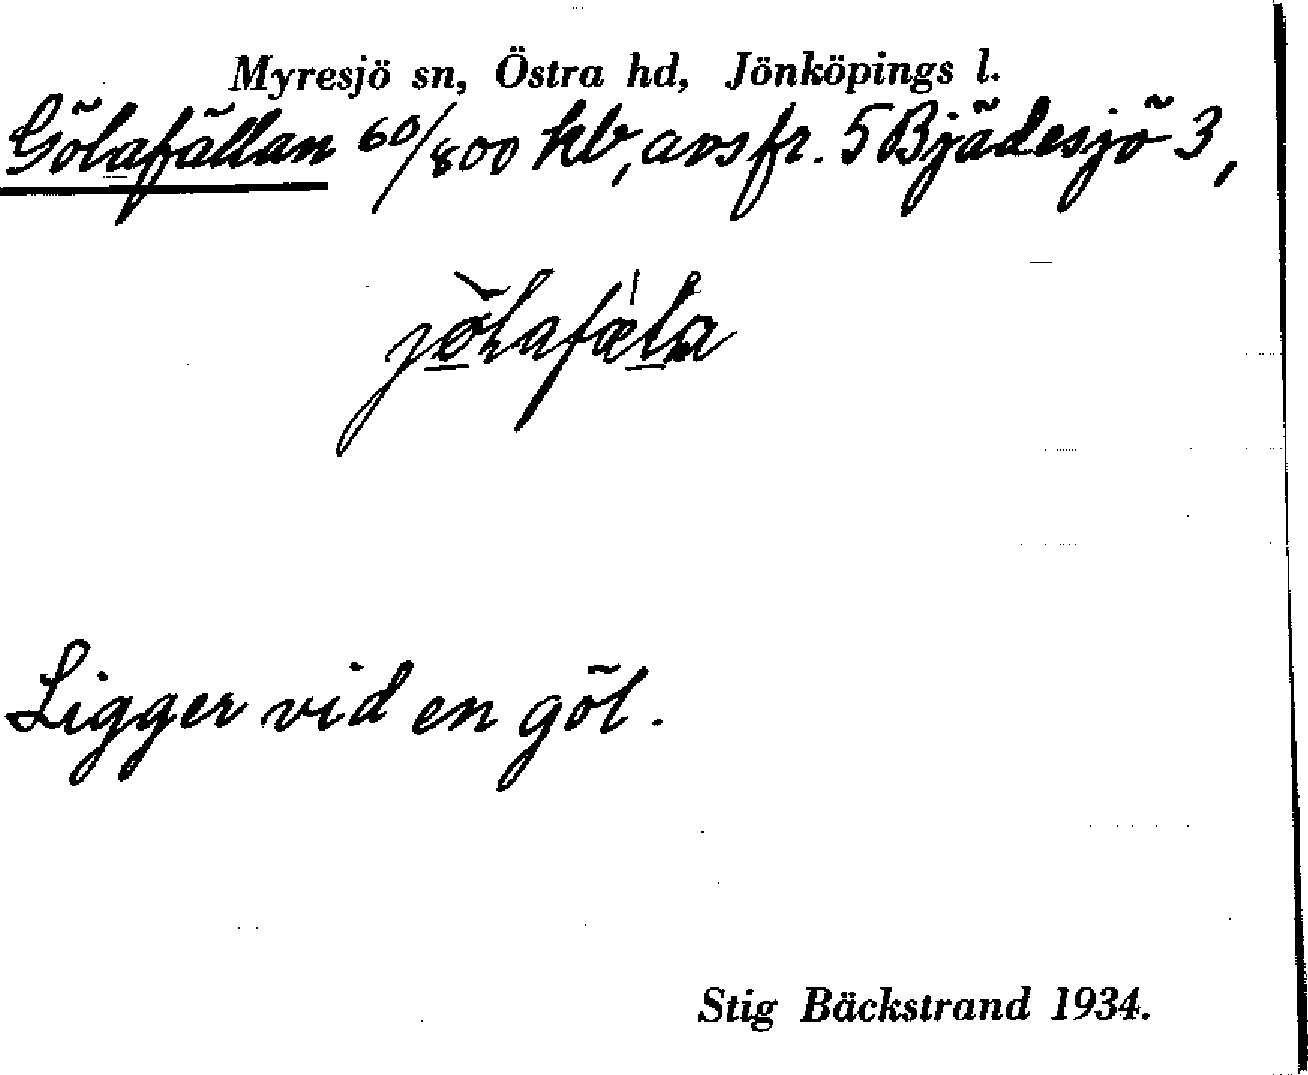 Myresjö sn, Östra hd, Jönköpings l.
Gölafällan 60/800 kb, avs fr. 5 Bjädesjö 3,
Ligger vid en göl.
Stig Bäckstrand 1934.